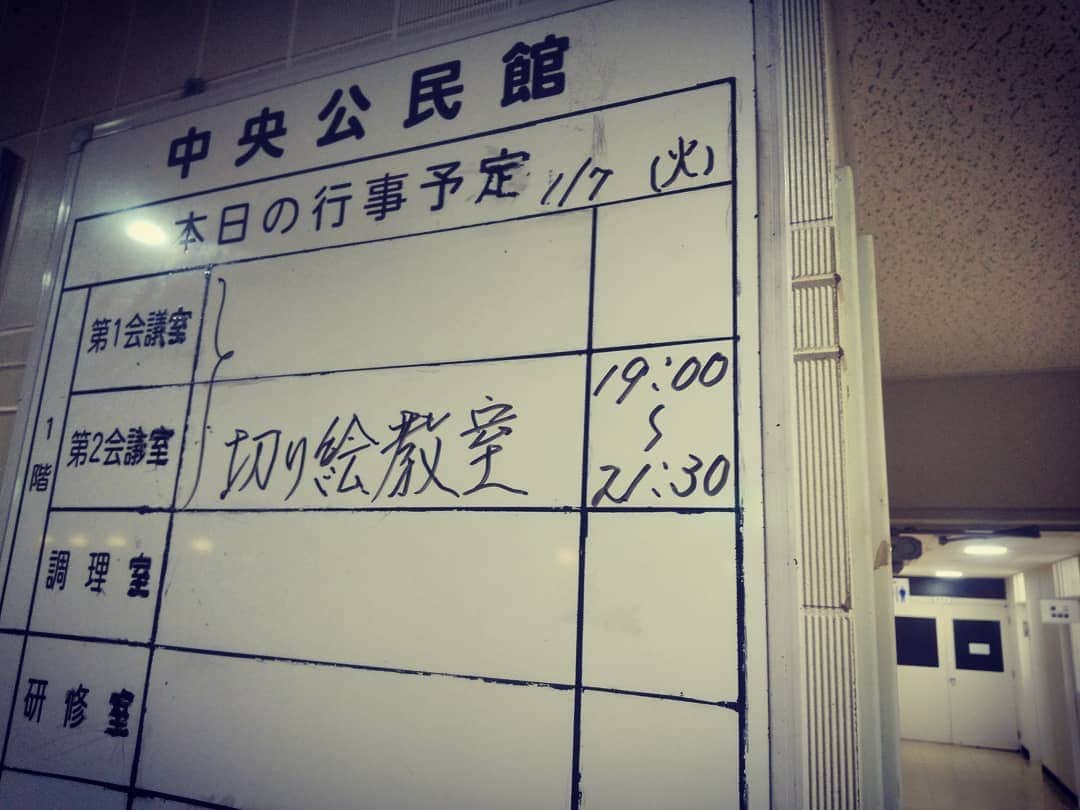 中央公民館
本日の行事予定 1/7 (火)
1階
第1会議室
第2会議室 切り絵教室 19:00 〜 21:30
調理室
研修室